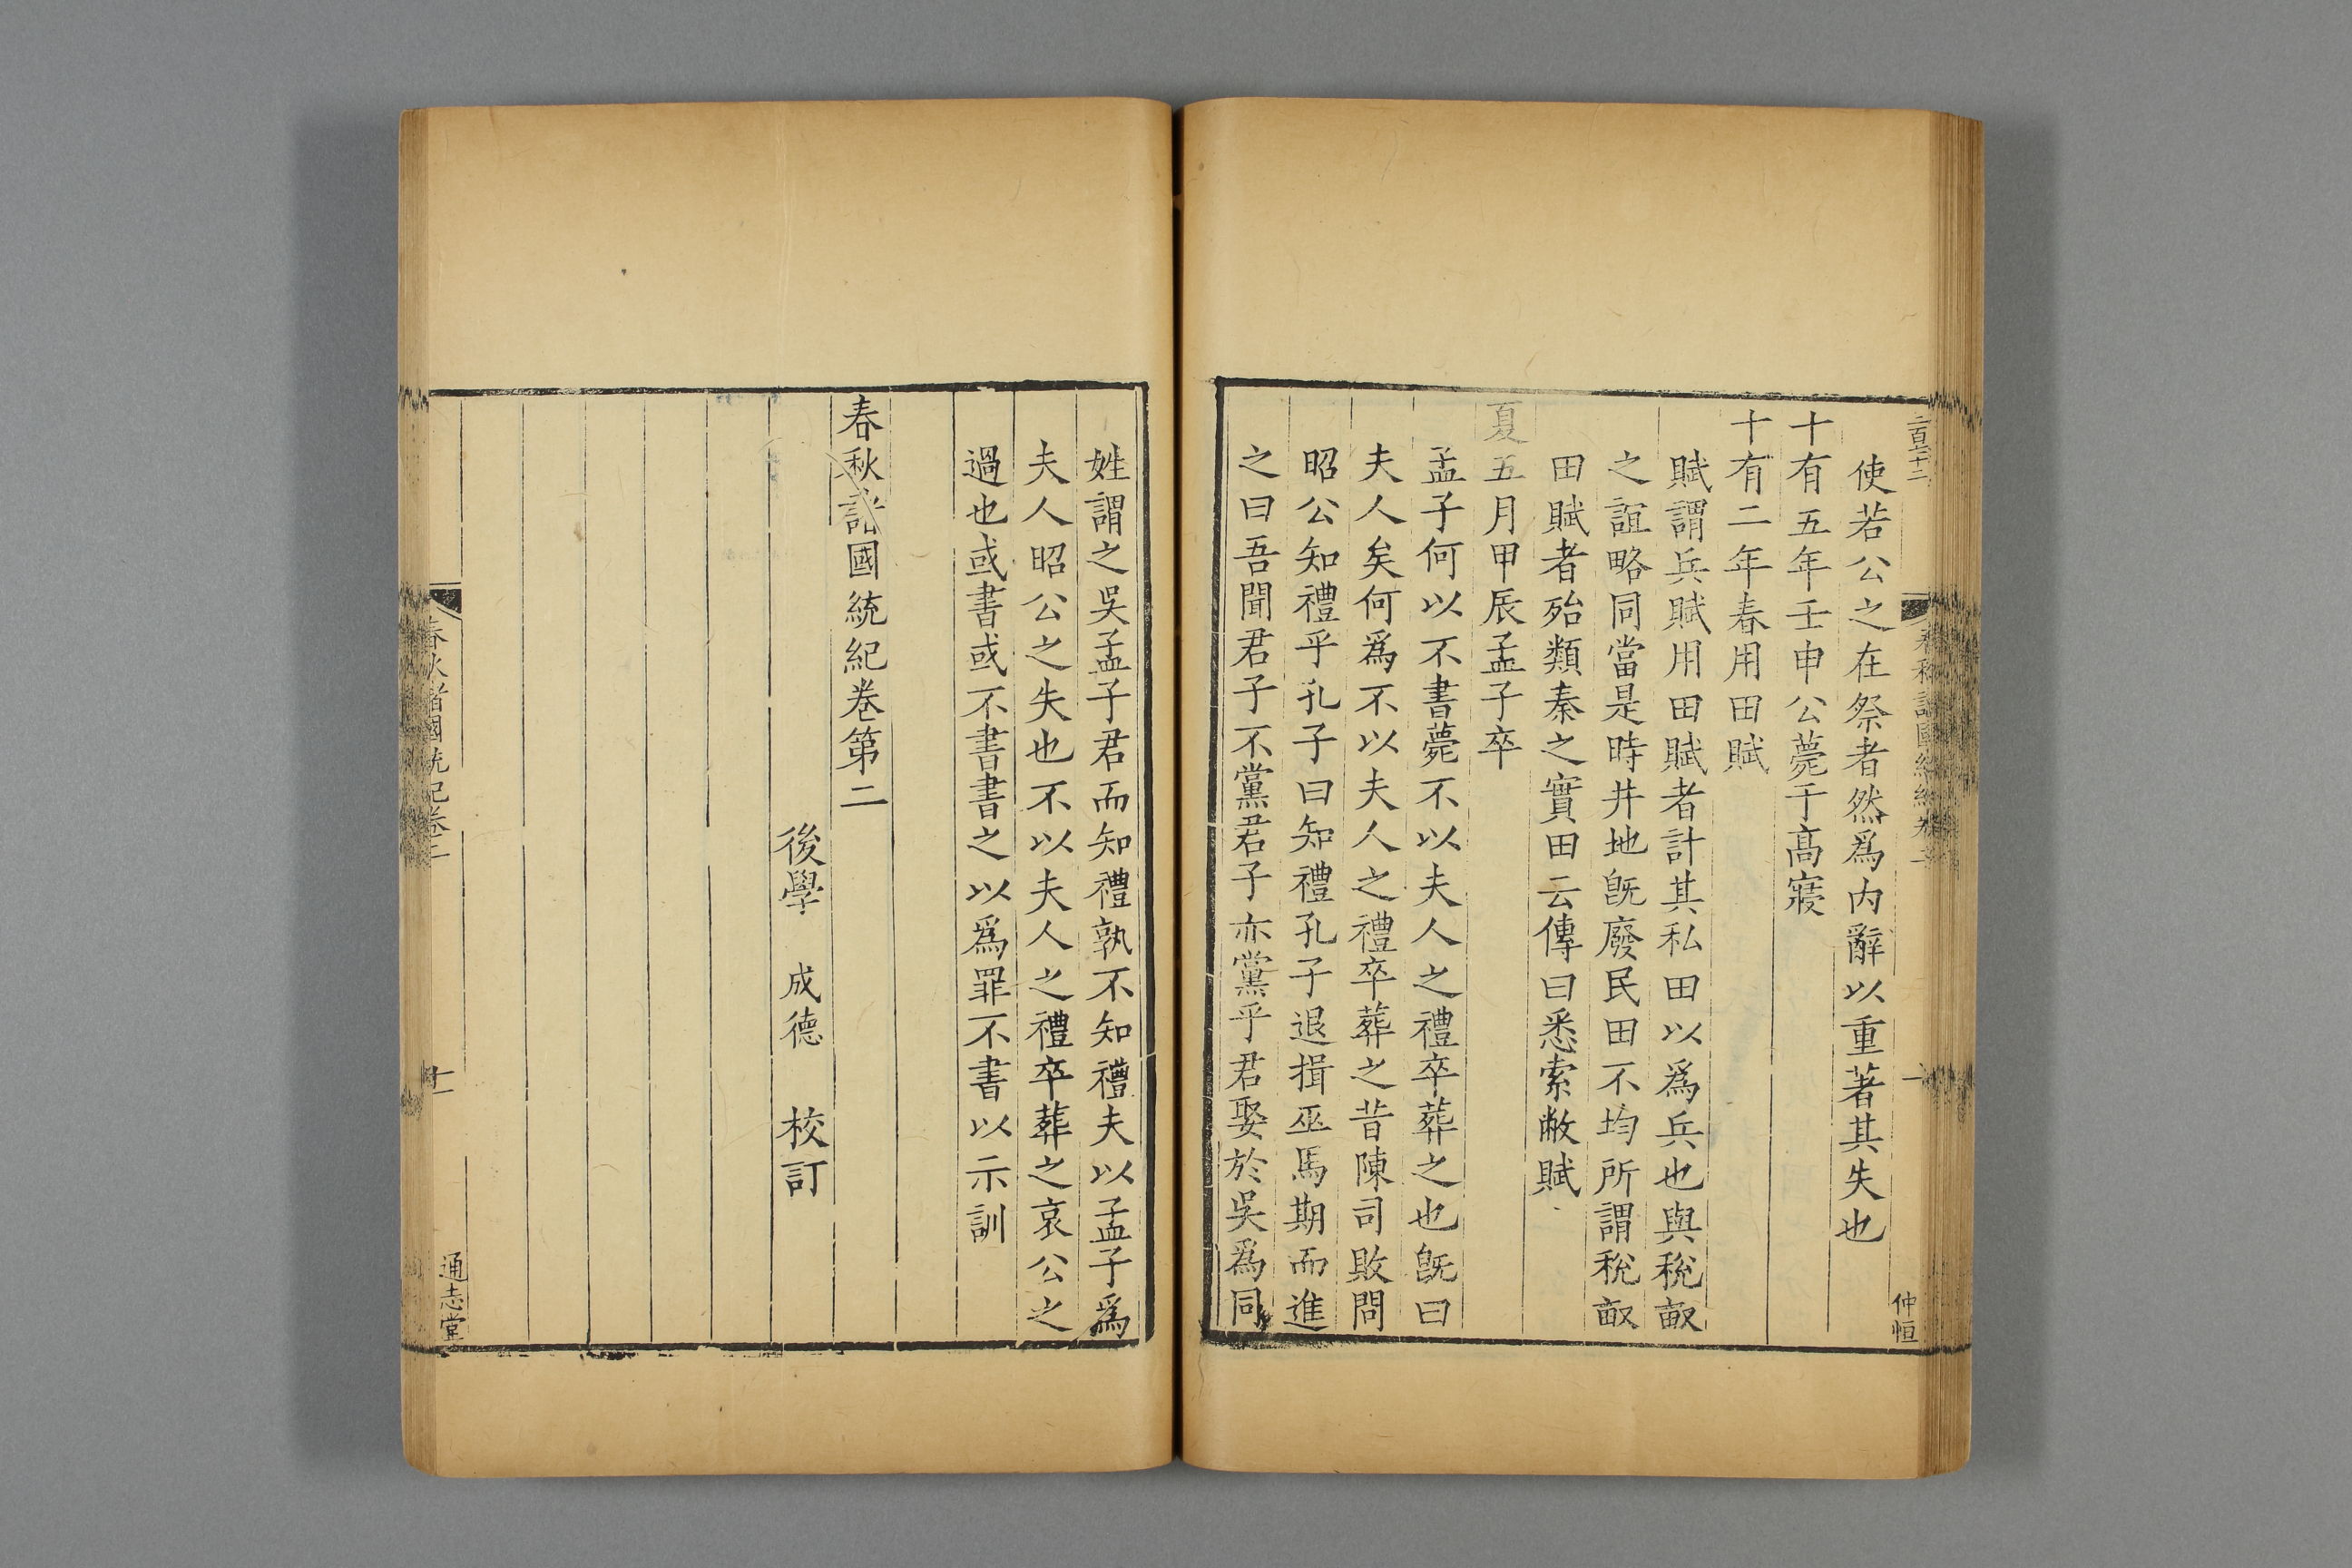 使若公之在祭者然爲内辭以重著其失也
十有五年壬申公薨于高寢
十有二年春用田賦
賦謂兵賦用田賦者計其私田以爲兵也與稅畝
之誼略同當是時井地旣廢民田不均所謂稅畝
田賦者殆類秦之實田云傳曰悉索敝賦
夏五月甲辰孟子卒
孟子何以不書薨不以夫人之禮卒葬之也旣曰
夫人矣何爲不以夫人之禮卒葬之昔陳司敗問
昭公知禮乎孔子曰知禮孔子退揖巫馬期而進
之曰吾聞君子不黨君子亦黨乎君娶於吳爲同
仲恒
姓謂之吳孟子君而知禮孰不知禮夫以孟子爲
夫人昭公之失也不以夫人之禮卒葬之哀公之
過也或書或不書書之以爲罪不書以示訓
春秋諸國統紀卷第二
後學 成德 校訂
春秋諸國統紀卷二
十一
通志堂